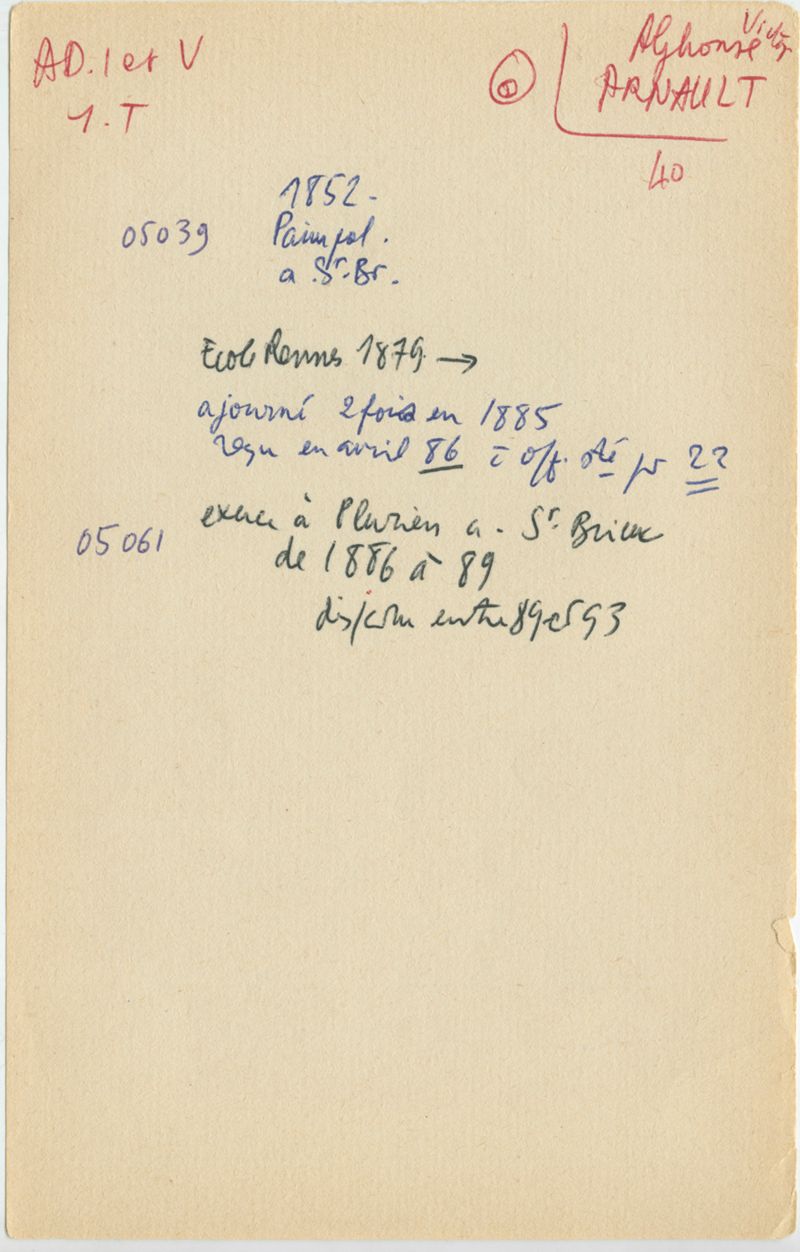 AD. I et V
1. T
Alphonse Victor
ARNAULT
40
1852.
05039 Paimpol.
a St. Br.
Ecole Rennes 1879 →
ajourné 2 fois en 1885
reçu en avril 86 off. sté pr 22
exerce à Plurien a. St. Brieuc
05061 de 1886 à 89
entre 89 et 93